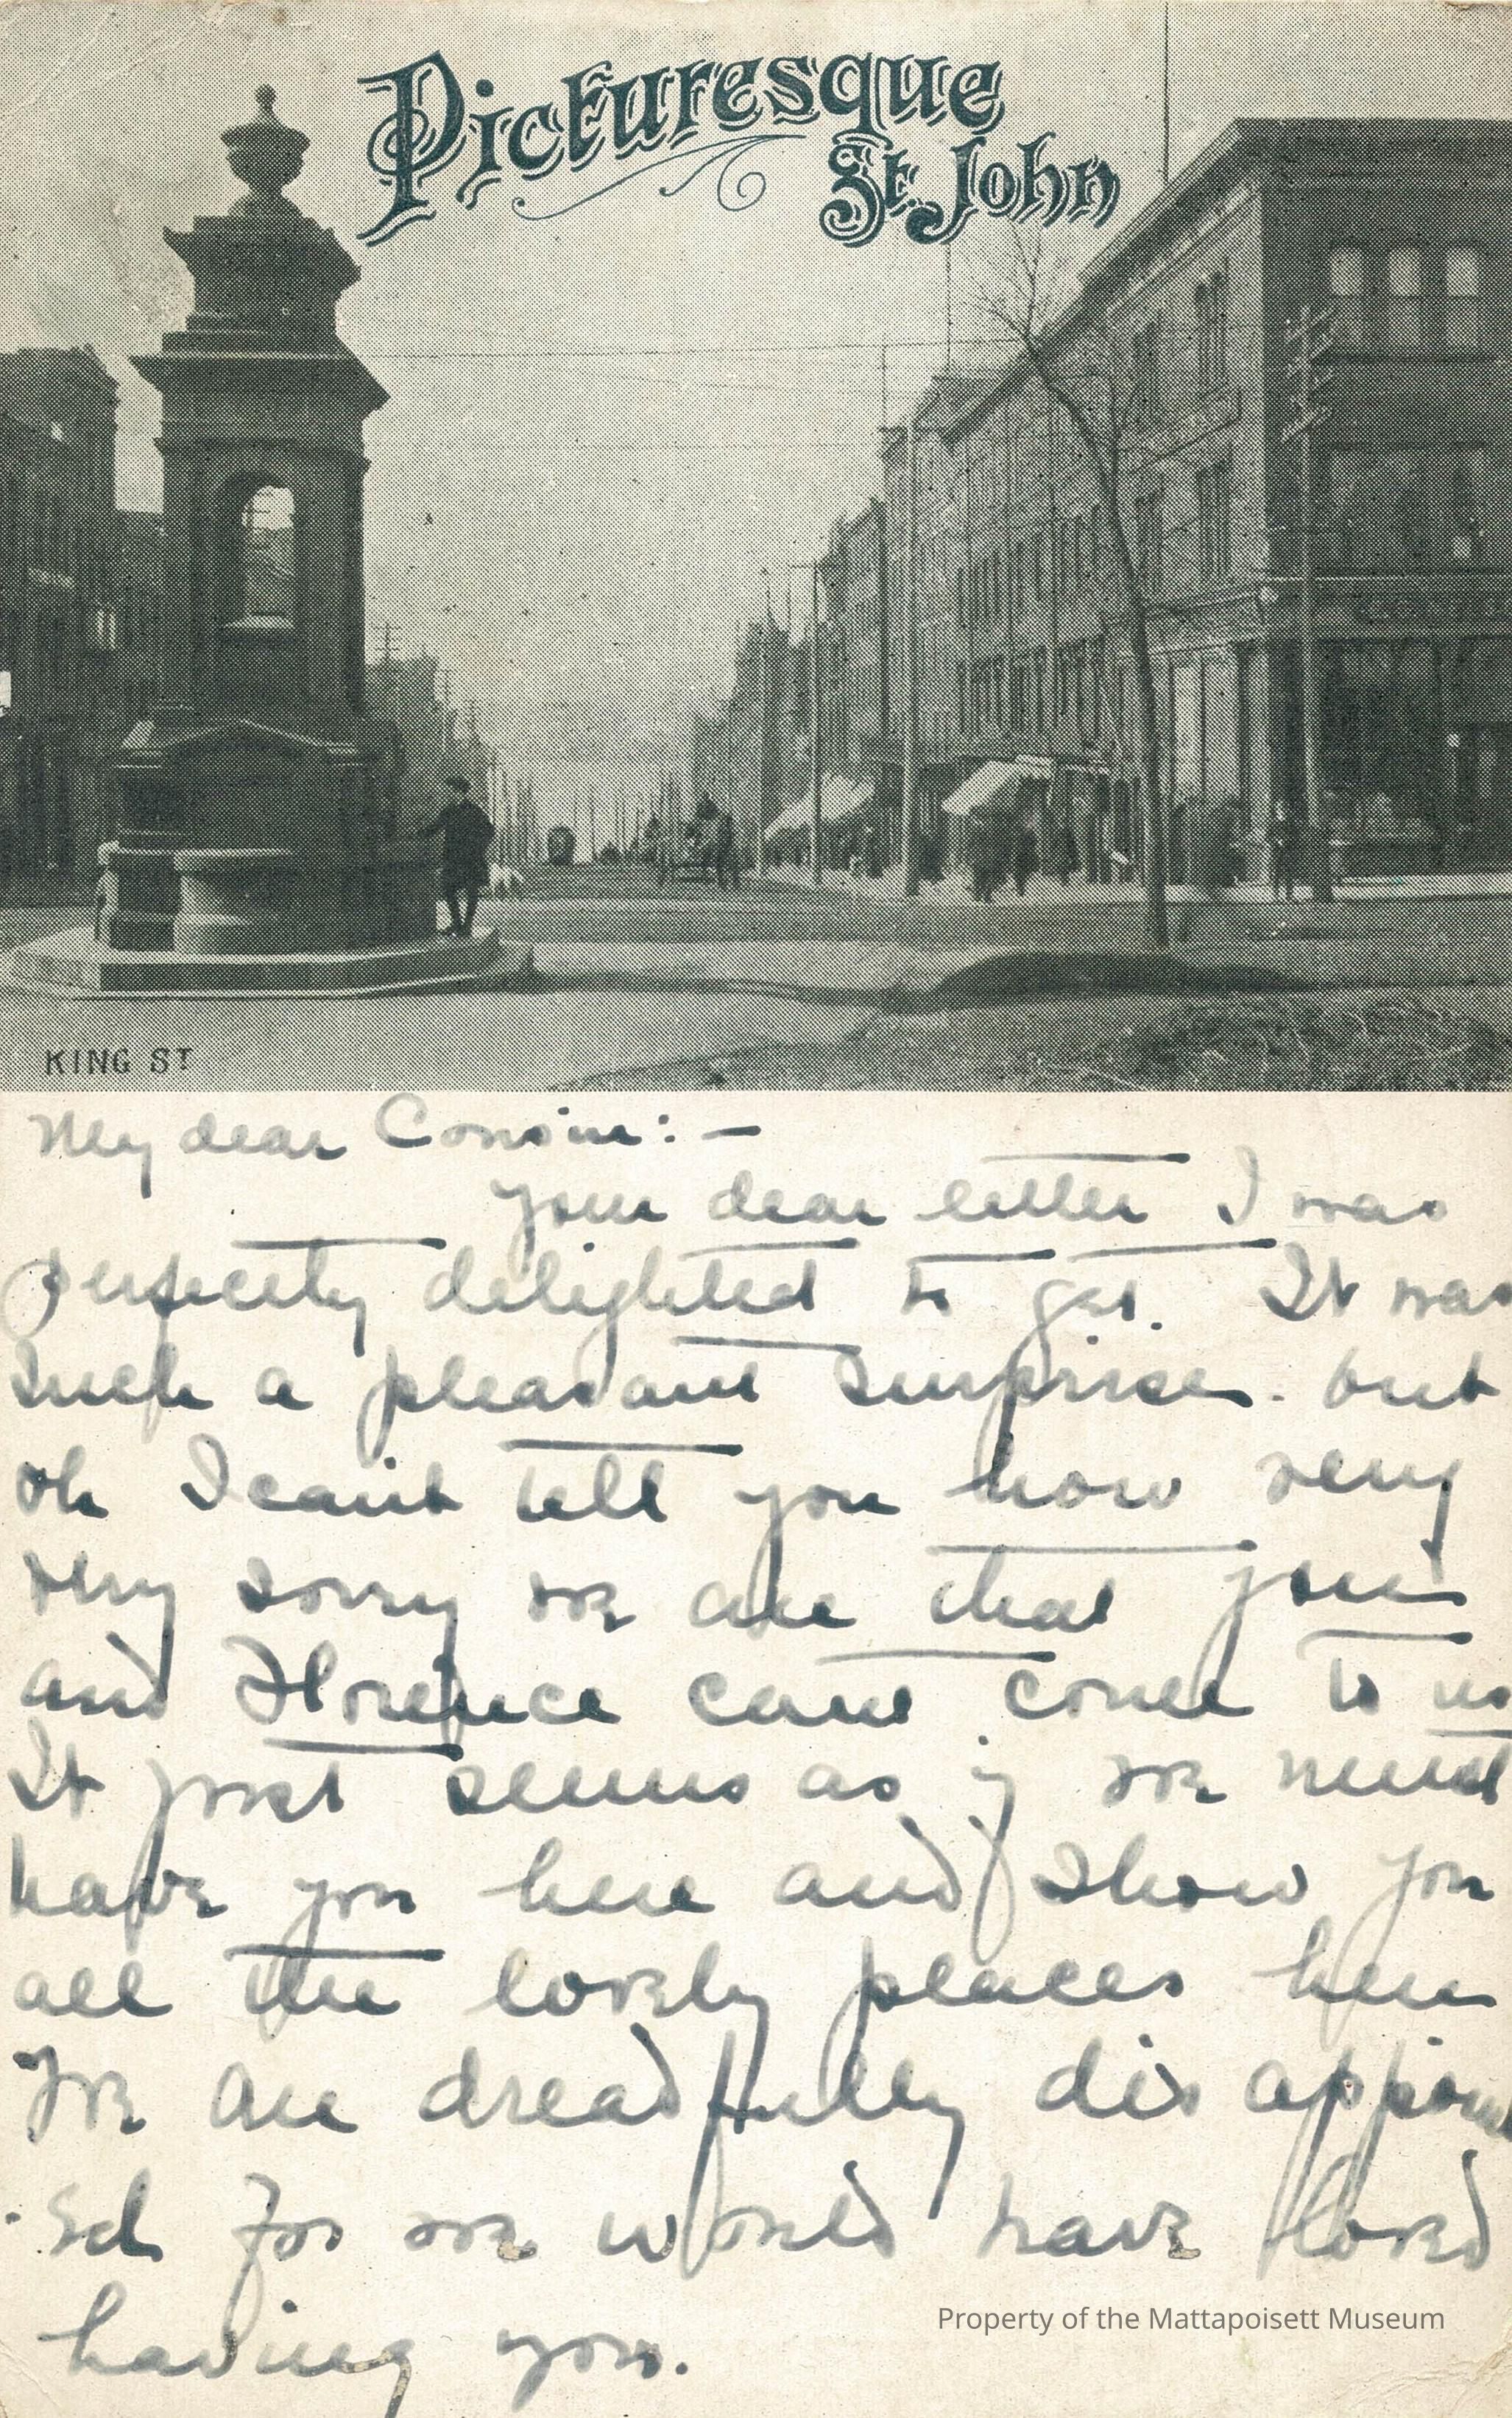 Picturesque
St. John
KING ST
My dear Cousin: —
your dear letter I was
perfectly delighted to get. It was
such a pleasant surprise. but
oh I can't tell you how very
very sorry we are that you
and Florence cant come to us
It just seems as if we must
have you here and show you
all the lovely places here
We are dreadfully dis appoint
-ed for we would have loved
having you.
Property of the Mattapoisett Museum